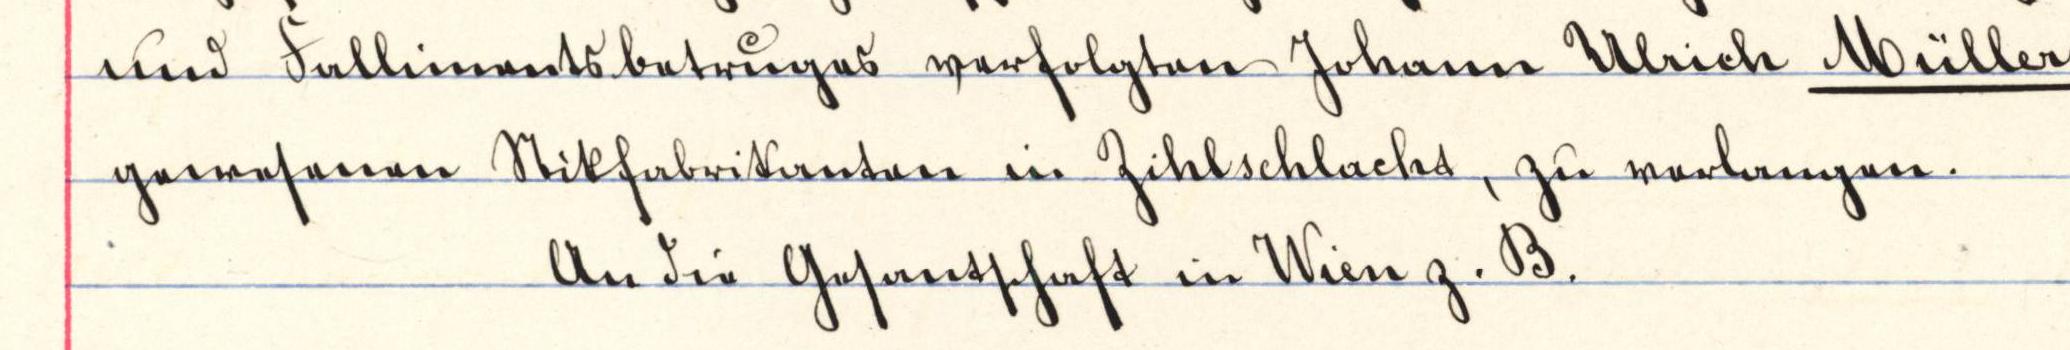 und Fallimentsbetruges verfolgten Johann Ulrich Müller
gewesenen Stikfabrikanten in Zihlschlacht, zu verlangen.
An die Gesantschaft in Wien z. B.